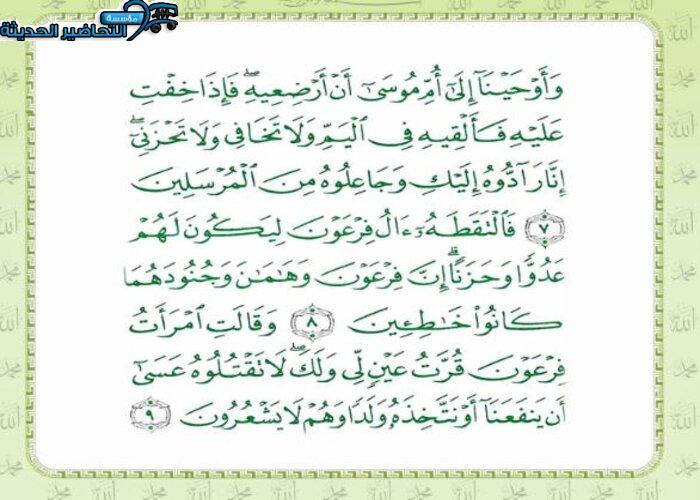 مؤسسة
التحاضير الحديثة
وَأَوْحَيْنَآ إِلَىٰٓ أُمِّ مُوسَىٰٓ أَنْ أَرْضِعِيهِ ۖ فَإِذَا خِفْتِ
عَلَيْهِ فَأَلْقِيهِ فِى ٱلْيَمِّ وَلَا تَخَافِى وَلَا تَحْزَنِىٓ ۖ
إِنَّا رَآدُّوهُ إِلَيْكِ وَجَاعِلُوهُ مِنَ ٱلْمُرْسَلِينَ
٧ فَٱلْتَقَطَهُۥٓ ءَالُ فِرْعَوْنَ لِيَكُونَ لَهُمْ
عَدُوًّا وَحَزَنًا ۗ إِنَّ فِرْعَوْنَ وَهَـٰمَـٰنَ وَجُنُودَهُمَا
كَانُوا۟ خَـٰطِـِٔينَ ٨ وَقَالَتِ ٱمْرَأَتُ
فِرْعَوْنَ قُرَّتُ عَيْنٍ لِّى وَلَكَ ۖ لَا تَقْتُلُوهُ عَسَىٰٓ
أَن يَنفَعَنَآ أَوْ نَتَّخِذَهُۥ وَلَدًا وَهُمْ لَا يَشْعُرُونَ ٩